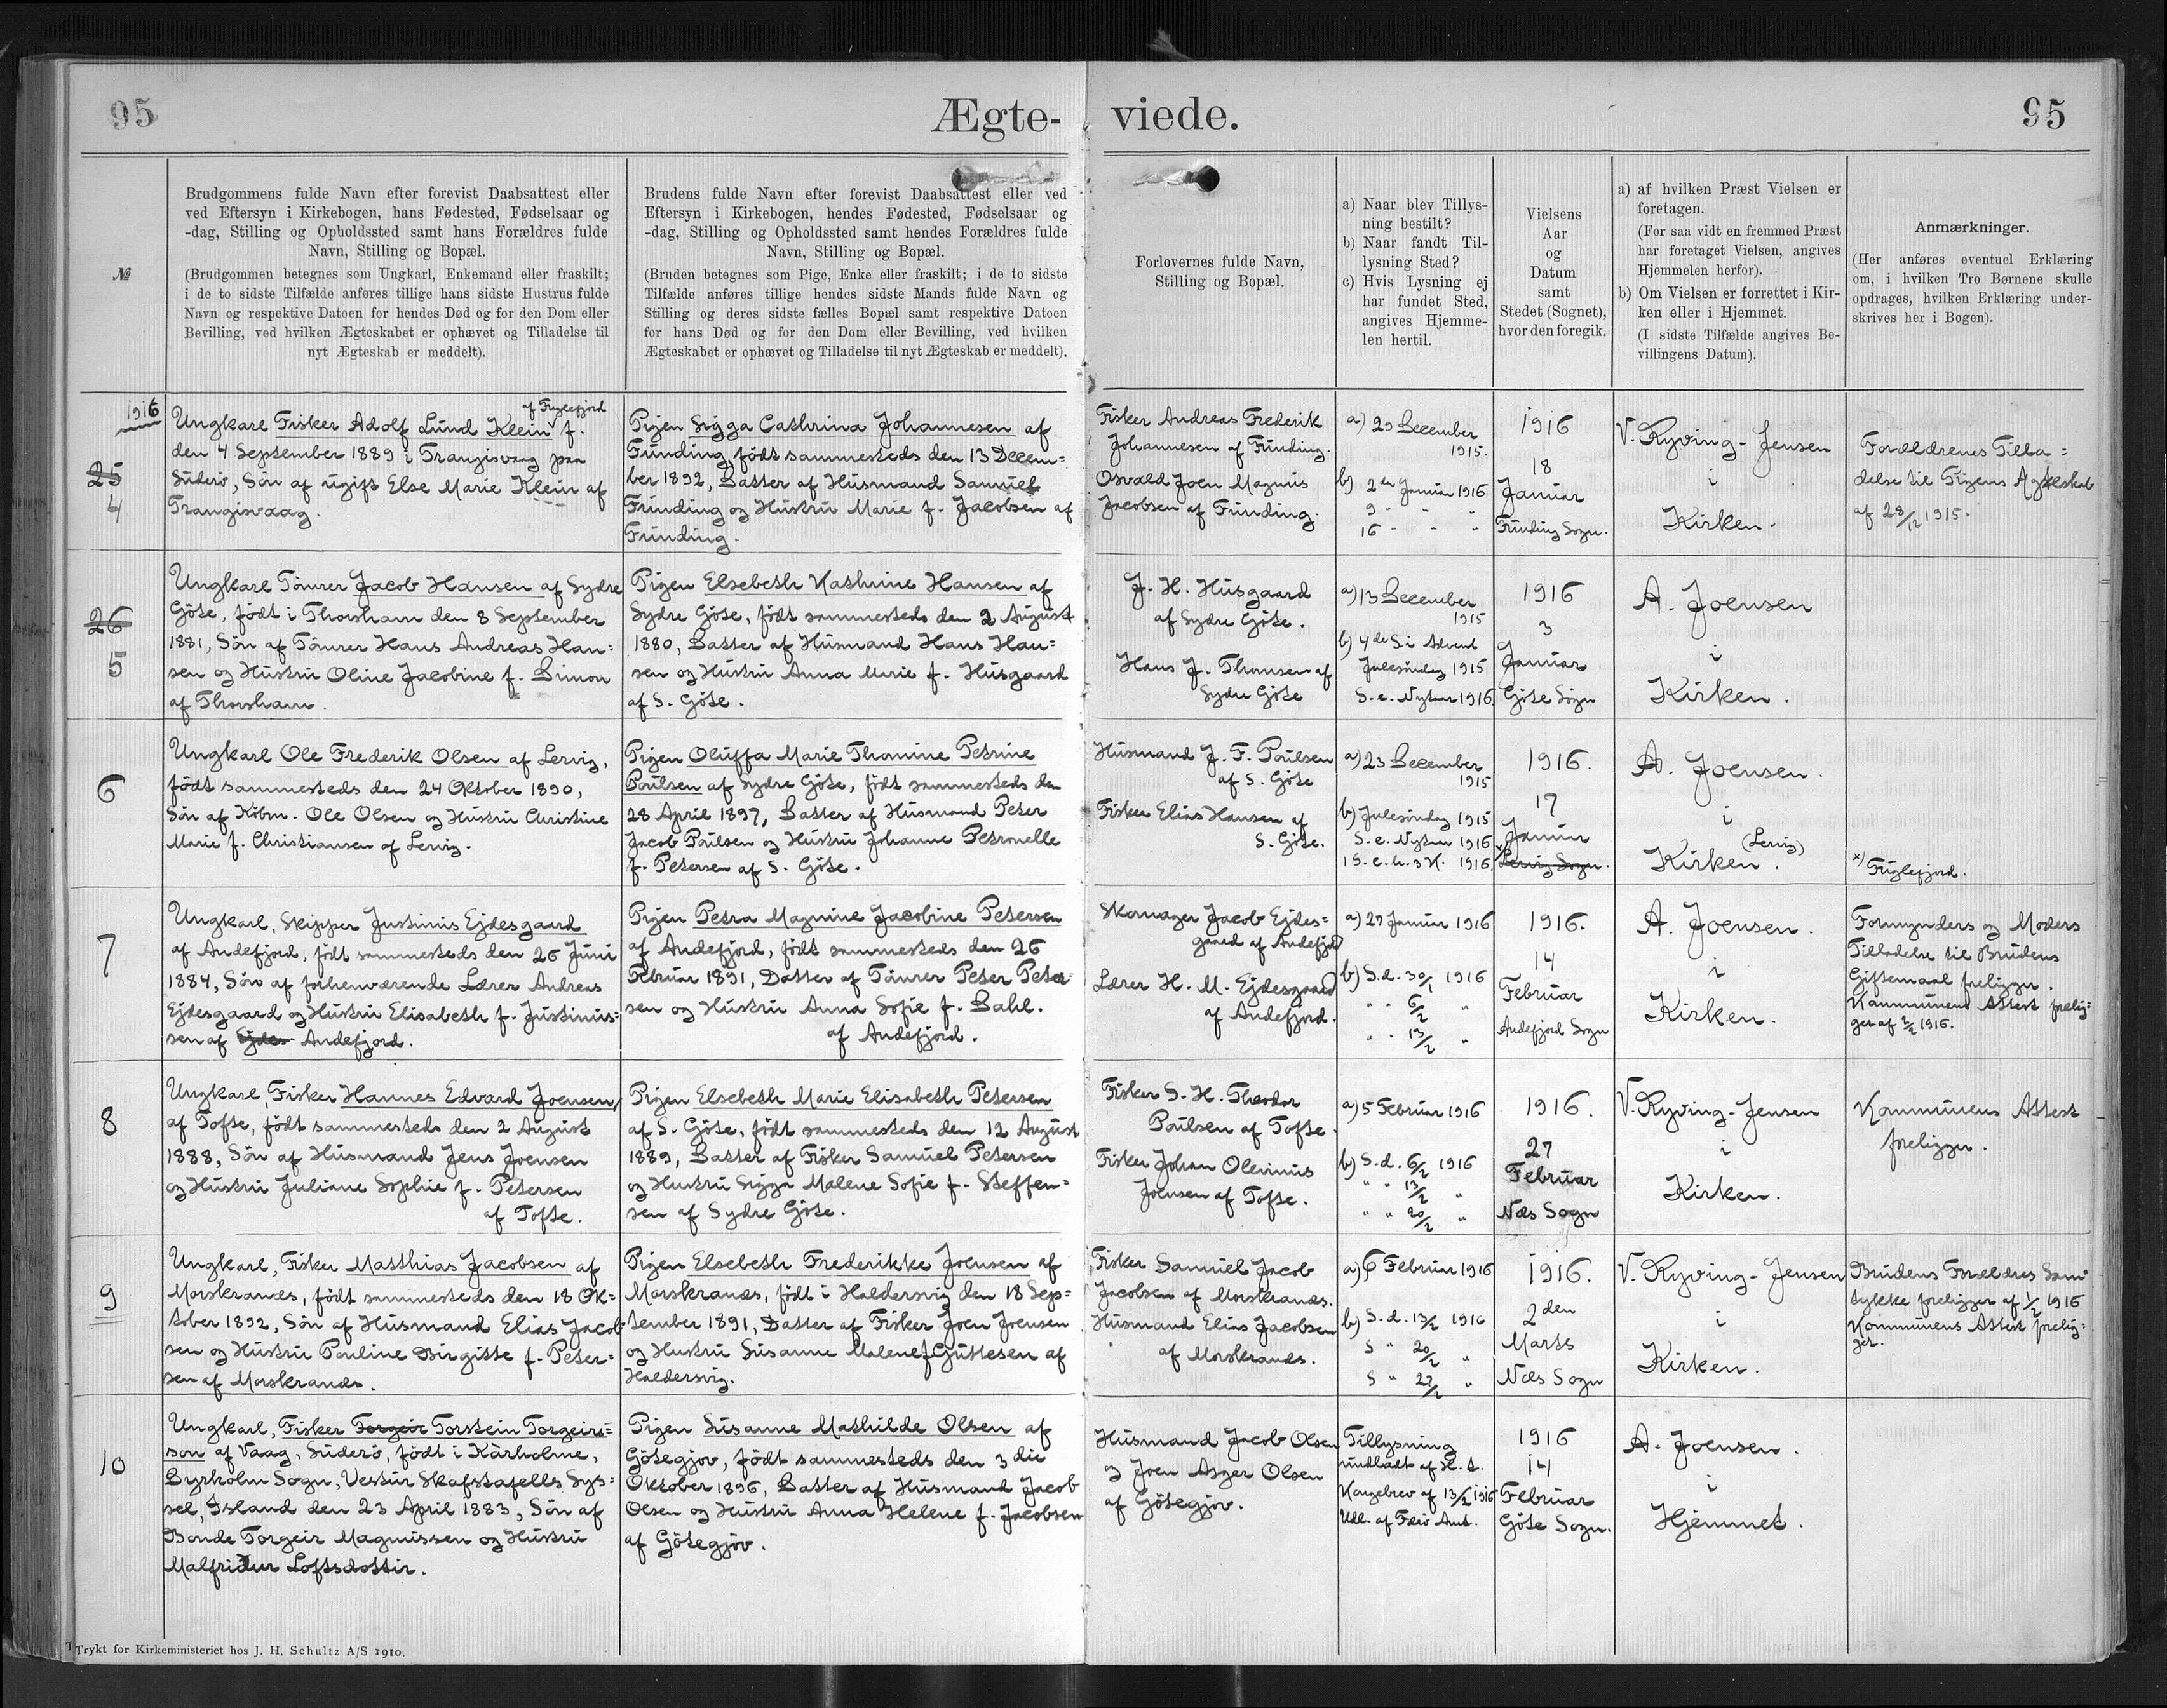 95
Ægte-
viede.
95
№
Brudgommens fulde Navn efter forevist Daabsattest eller
ved Eftersyn i Kirkebogen, hans Fødested, Fødselsaar og
-dag, Stilling og Opholdssted samt hans Forældres fulde
Navn, Stilling og Bopæl.
(Brudgommen betegnes som Ungkarl, Enkemand eller fraskilt;
i de to sidste Tilfælde anføres tillige hans sidste Hustrus fulde
Navn og respektive Datoen for hendes Død og for den Dom eller
Bevilling, ved hvilken Ægteskabet er ophævet og Tilladelse til
nyt Ægteskab er meddelt).
Brudens fulde Navn efter forevist Daabsattest eller ved
Eftersyn i Kirkebogen, hendes Fødested, Fødselsaar og
-dag, Stilling og Opholdssted samt hendes Forældres fulde
Navn, Stilling og Bopæl.
(Bruden betegnes som Pige, Enke eller fraskilt; i de to sidste
Tilfælde anføres tillige hendes sidste Mands fulde Navn og
Stilling og deres sidste fælles Bopæl samt respektive Datoen
for hans Død og for den Dom eller Bevilling, ved hvilken
Ægteskabet er ophævet og Tilladelse til nyt Ægteskab er meddelt).
Forlovernes fulde Navn,
Stilling og Bopæl.
a) Naar blev Tillys-
ning bestilt?
b) Naar fandt Til-
lysning Sted?
c) Hvis Lysning ej
har fundet Sted,
angives Hjemme-
len hertil.
Vielsens
Aar
og
Datum
samt
Stedet (Sognet),
hvor den foregik.
a) af hvilken Præst Vielsen er
foretagen.
(For saa vidt en fremmed Præst
har foretaget Vielsen, angives
Hjemmelen herfor).
b) Om Vielsen er forrettet i Kir-
ken eller i Hjemmet.
(I sidste Tilfælde angives Be-
villingens Datum).
Anmærkninger.
(Her anføres eventuel Erklæring
om, i hvilken Tro Børnene skulle
opdrages, hvilken Erklæring under-
skrives her i Bogen).
1916
25
4
af Fuglefjord
Ungkarl Fisker Adolf Lund Klein f.
den 4 September 1889 i Trangisvaag paa
Suderö, Sön af ugift Else Marie Klein af
Trangisvaag.
Pigen Sigga Cathrina Johannesen af
Funding, födt sammesteds den 13 Decem=
ber 1892, Datter af Husmand Samuel
Funding og Hustru Marie f. Jacobsen af
Funding.
Fisker Andreas Frederik
Johannesen af Funding.
Osvald Joen Magnus
Jacobsen af Funding.
a) 29 December
1915.
b) 2den Januar 1916
9 " " "
16 " " "
1916
18
Januar
Funding Sogn.
V. Ryving-Jensen
i
Kirken.
Forældrenes Tilla=
delse til Pigens Ægteskab
af 28/12 1915.
26
5
Ungkarl Tömrer Jacob Hansen af Sydre
Göte, födt i Thorshavn den 8 September
1881, Sön af Tömrer Hans Andreas Han=
sen og Hustru Oline Jacobine f. Simon
af Thorshavn.
Pigen Elsebeth Kathrine Hansen af
Sydre Göte, födt sammesteds den 2 August
1880, Datter af Husmand Hans Han=
sen og Hustru Anna Marie f. Husgaard
af S. Göte.
J. H. Husgaard
af Sydre Göte.
Hans J. Thomsen af
Sydre Göte
a) 13 December
1915
b) 4de S. i Advent
Julesöndag 1915
S. e. Nytaar 1916
1916
3
Januar
Göte Sogn
A. Joensen
i
Kirken.
6
Ungkarl Ole Frederik Olsen af Lervig,
födt sammesteds den 24 Oktober 1890,
Sön af Köbm. Ole Olsen og Hustru Christine
Marie f. Christiansen af Lervig.
Pigen Oluffa Marie Thomine Petrine
Poulsen af Sydre Göte, födt sammesteds den
28 April 1897, Datter af Husmand Peter
Jacob Poulsen og Hustru Johanne Petronelle
f. Petersen af S. Göte.
Husmand J. F. Poulsen
af S. Göte
Fisker Elias Hansen af
S. Göte.
a) 23 December
1915
b) Julesöndag 1915
S. e. Nytaar 1916
1 S. e. h. 3 K. 1916
1916.
17
Januar
x) Lervig Sogn.
A. Joensen.
i
(Lervig)
Kirken.
x) Fuglefjord.
7
Ungkarl, Skipper Justinus Ejdesgaard
af Andefjord, födt sammesteds den 26 Juni
1884, Sön af forhenværende Lærer Andreas
Ejdesgaard og Hustru Elisabeth f. Justinus=
sen af Ejde Andefjord.
Pigen Petra Magnine Jacobine Petersen
af Andefjord, födt sammesteds den 26
Februar 1891, Datter af Tömrer Peter Peter=
sen og Hustru Anna Sofie f. Dahl.
af Andefjord.
Skomager Jacob Ejdes=
gaard af Andefjord
Lærer H. M. Ejdesgaard
af Andefjord.
a) 27 Januar 1916
b) S. d. 30/1 1916
" " 6/2 "
" " 13/2 "
1916.
14
Februar
Andefjord Sogn
A. Joensen.
i
Kirken.
Formynders og Moders
Tilladelse til Brudens
Giftemaal foreligger.
Kommunens Attest forelig=
ger af 2/2 1916.
8
Ungkarl, Fisker Hannes Edvard Joensen,
af Tofte, födt sammesteds den 2 August
1888, Sön af Husmand Jens Joensen
og Hustru Juliane Sophie f. Petersen
af Tofte.
Pigen Elsebeth Marie Elisabeth Petersen
af S. Göte, födt sammesteds den 12 August
1889, Datter af Fisker Samuel Petersen
og Hustru Sigga Malene Sofie f. Steffen=
sen af Sydre Göte.
Fisker S. H. Theodor
Poulsen af Tofte.
Fisker Johan Olevinus
Joensen af Tofte.
a) 5 Februar 1916
b) S. d. 6/2 1916
" " 13/2 "
" " 20/2 "
1916.
27
Februar
Næs Sogn
V. Ryving-Jensen
i
Kirken.
Kommunens Attest
foreligger.
9
Ungkarl, Fisker Matthias Jacobsen af
Morskranes, födt sammesteds den 18 Ok=
tober 1892, Sön af Husmand Elias Jacob
sen og Hustru Pauline Birgitte f. Peter=
sen af Morskranes.
Pigen Elsebeth Frederikke Joensen af
Morskranes, födt i Haldersvig den 18 Sep=
tember 1891, Datter af Fisker Joen Joensen
og Hustru Susanne Malene f Guttesen af
Haldersvig.
Fisker Samuel Jacob
Jacobsen af Morskranes.
Husmand Elias Jacobsen
af Morskranes.
a) 6 Februar 1916
b) S. d. 13/2 1916
S " 20/2 "
S " 27/2 "
1916.
2den
Marts
Næs Sogn
V. Ryving-Jensen
i
Kirken.
Brudens Forældres Sam
tykke foreligger af 1/2 1916
Kommunens Attest forelig=
ger.
10
Ungkarl, Fisker Torgeir Torstein Torgeirs=
son af Vaag, Suderö, födt i Kárholme,
Dyrholm Sogn, Vestur Skafstafells Sys=
sel, Island den 23 April 1883, Sön af
Bonde Torgeir Magnussen og Hustru
Malfridur Loftsdottir.
Pigen Susanne Mathilde Olsen af
Götegjov, födt sammesteds den 3 die
Oktober 1896, Datter af Husmand Jacob
Olsen og Hustru Anna Helene f. Jacobsen
af Götegjov.
Husmand Jacob Olsen
og Joen Asger Olsen
af Götegjov.
Tillysning
undladt af
Kongebrev af 13/2 1916
Udl. af Færö Amt.
1916
14
Februar
Göte Sogn.
A. Joensen.
i
Hjemmet.
Trykt for Kirkeministeriet hos J. H. Schultz A/S 1910.